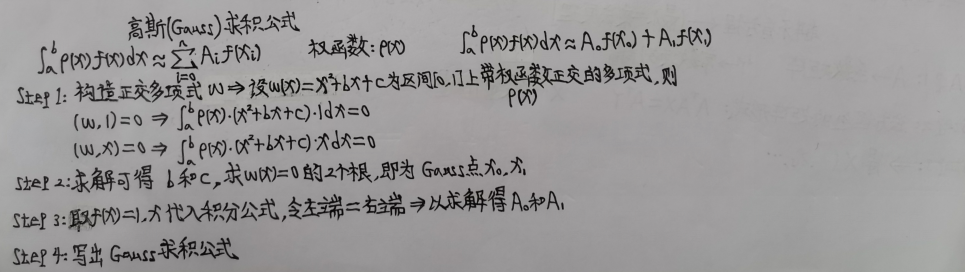 高斯(Gauss)求积公式
∫ₐᵇρ(x)f(x)dx≈∑ⁿᵢ₌₀Aᵢf(xᵢ) 权函数:ρ(x) ∫ₐᵇρ(x)f(x)dx≈A₀f(x₀)+A₁f(x₁)
Step 1: 构造正交多项式 w ⇒ 设w(x)=x²+bx+c为区间[0,1]上带权函数正交的多项式,则
ρ(x)
(w,1)=0 ⇒ ∫ₐᵇρ(x)·(x²+bx+c)·1dx=0
(w,x)=0 ⇒ ∫ₐᵇρ(x)·(x²+bx+c)·xdx=0
Step 2:求解可得 b和c,求w(x)=0的2个根,即为Gauss点x₀,x₁
Step 3:取f(x)=1,x代入积分公式,令左端=右端⇒以求解得A₀和A₁
Step 4:写出Gauss求积公式